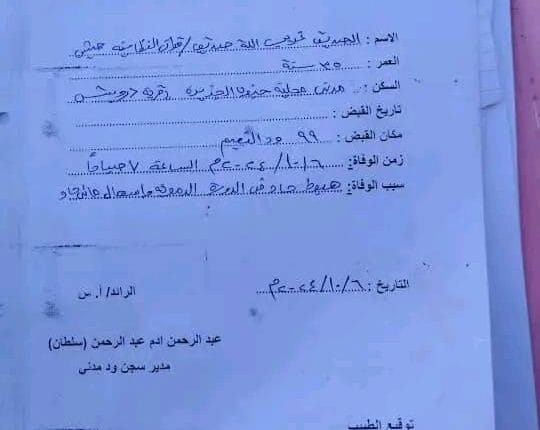 الاسم : الصديق عوض الله صديق / قرآن النظامية حبيشي
العمر : ٣٥ سنة
السكن : مدني محلية جنوب الجزيرة قرية درويش
تاريخ القبض :
مكان القبض : ٩٩ ود النعيم
زمن الوفاة: ٢٠٢٤/١٠/٦م الساعة ٧ صباحاً
سبب الوفاة: هبوط حاد في الدورة الدموية واسهال مائي حاد
التاريخ : ٢٠٢٤/١٠/٦م
الرائد/ أ. س
عبد الرحمن ادم عبد الرحمن (سلطان)
مدير سجن ود مدني
توقيع الطبيب